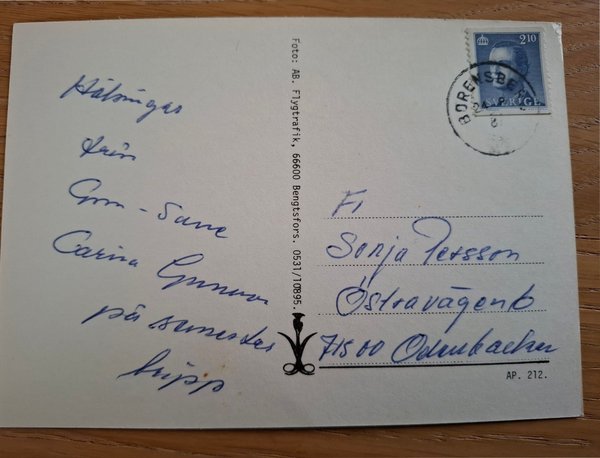 Hälsningar
från
Gun-Sune
Carina Gunnar
på semester
tripp
Foto: AB. Flygtrafik, 66600 Bengtsfors. 0531/10895.
2.10
SVERIGE
BORENSBERG
Fr
Sonja Persson
Östravägen 6
71500 Odensbacken
AP. 212.